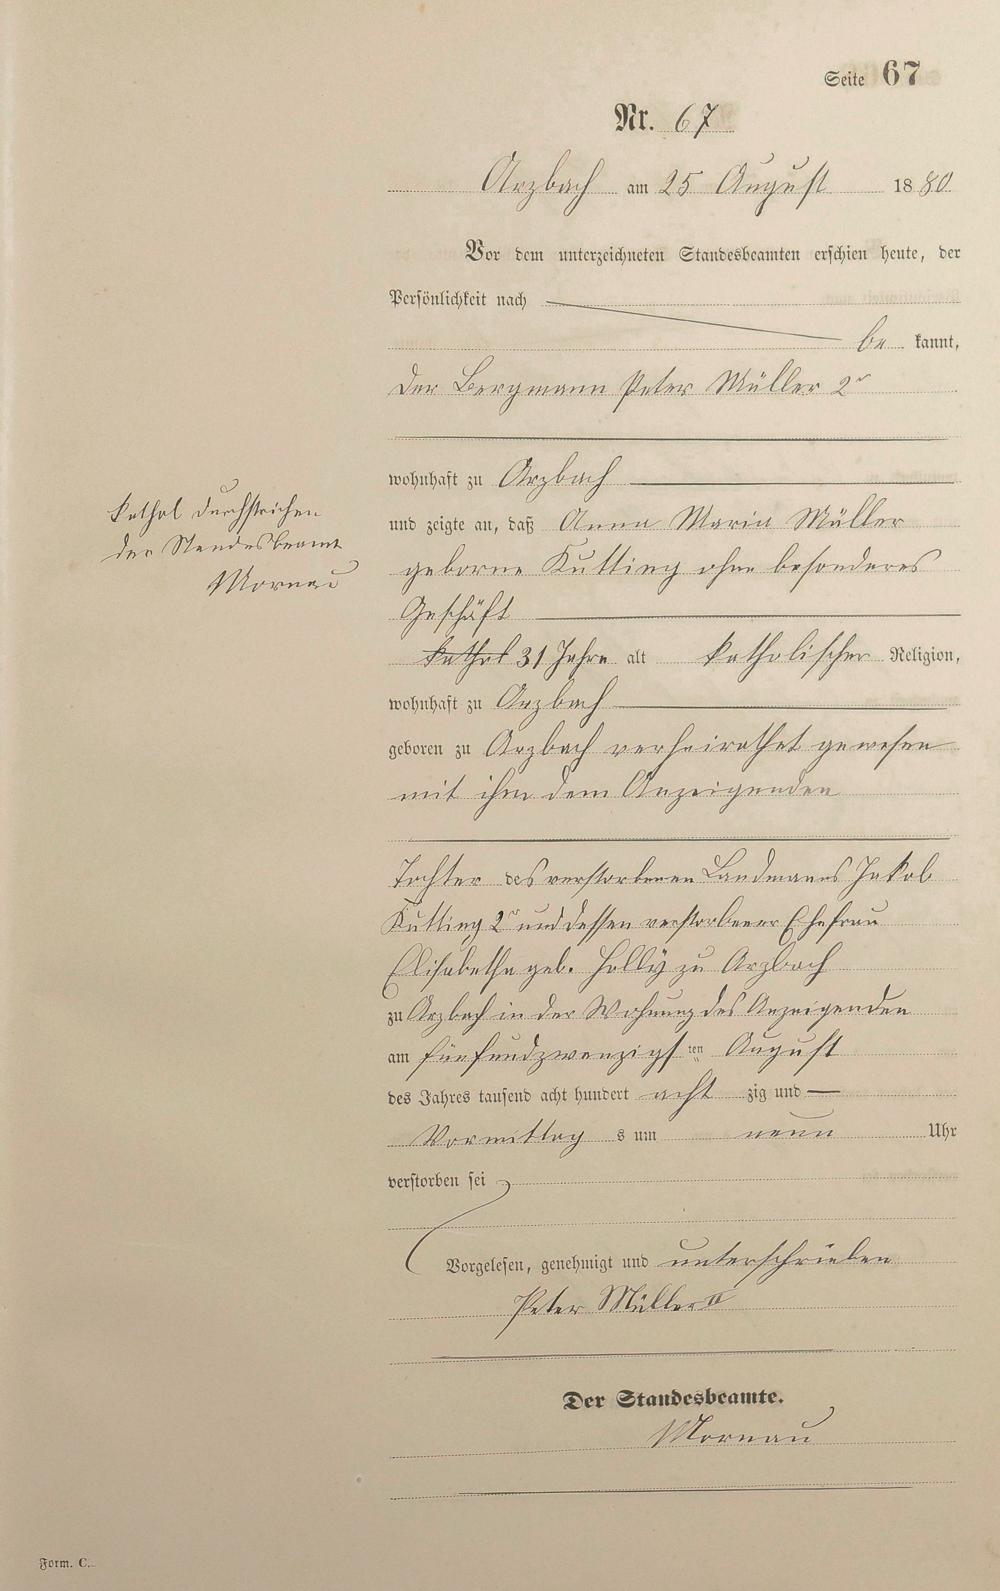 Seite 67
Nr. 67
Arzbach am 25 August 1880
Vor dem unterzeichneten Standesbeamten erschien heute, der
Persönlichkeit nach
bekannt,
der Bergmann Peter Müller 2r
wohnhaft zu Arzbach
kathol durchstrichen
der Standesbeamte
Mornau
und zeigte an, daß Anna Maria Müller
geborne Kutting ohne besonderes
Geschäft
kathol 31 Jahre alt katholischer Religion,
wohnhaft zu Arzbach
geboren zu Arzbach verheirathet gewesen
mit ihm dem Anzeigenden
Tochter des verstorbenen Landmanns Jakob
Kutting 2r und dessen verstorbener Ehefrau
Elisabetha geb. Holly zu Arzbach
zu Arzbach in der Wohnung des Anzeigenden
am fünfundzwanzigsten August
des Jahres tausend acht hundert achtzig und
Vormittags um neun Uhr
verstorben sei
Vorgelesen, genehmigt und unterschrieben
Peter Müller II
Der Standesbeamte.
Mornau
Form. C.